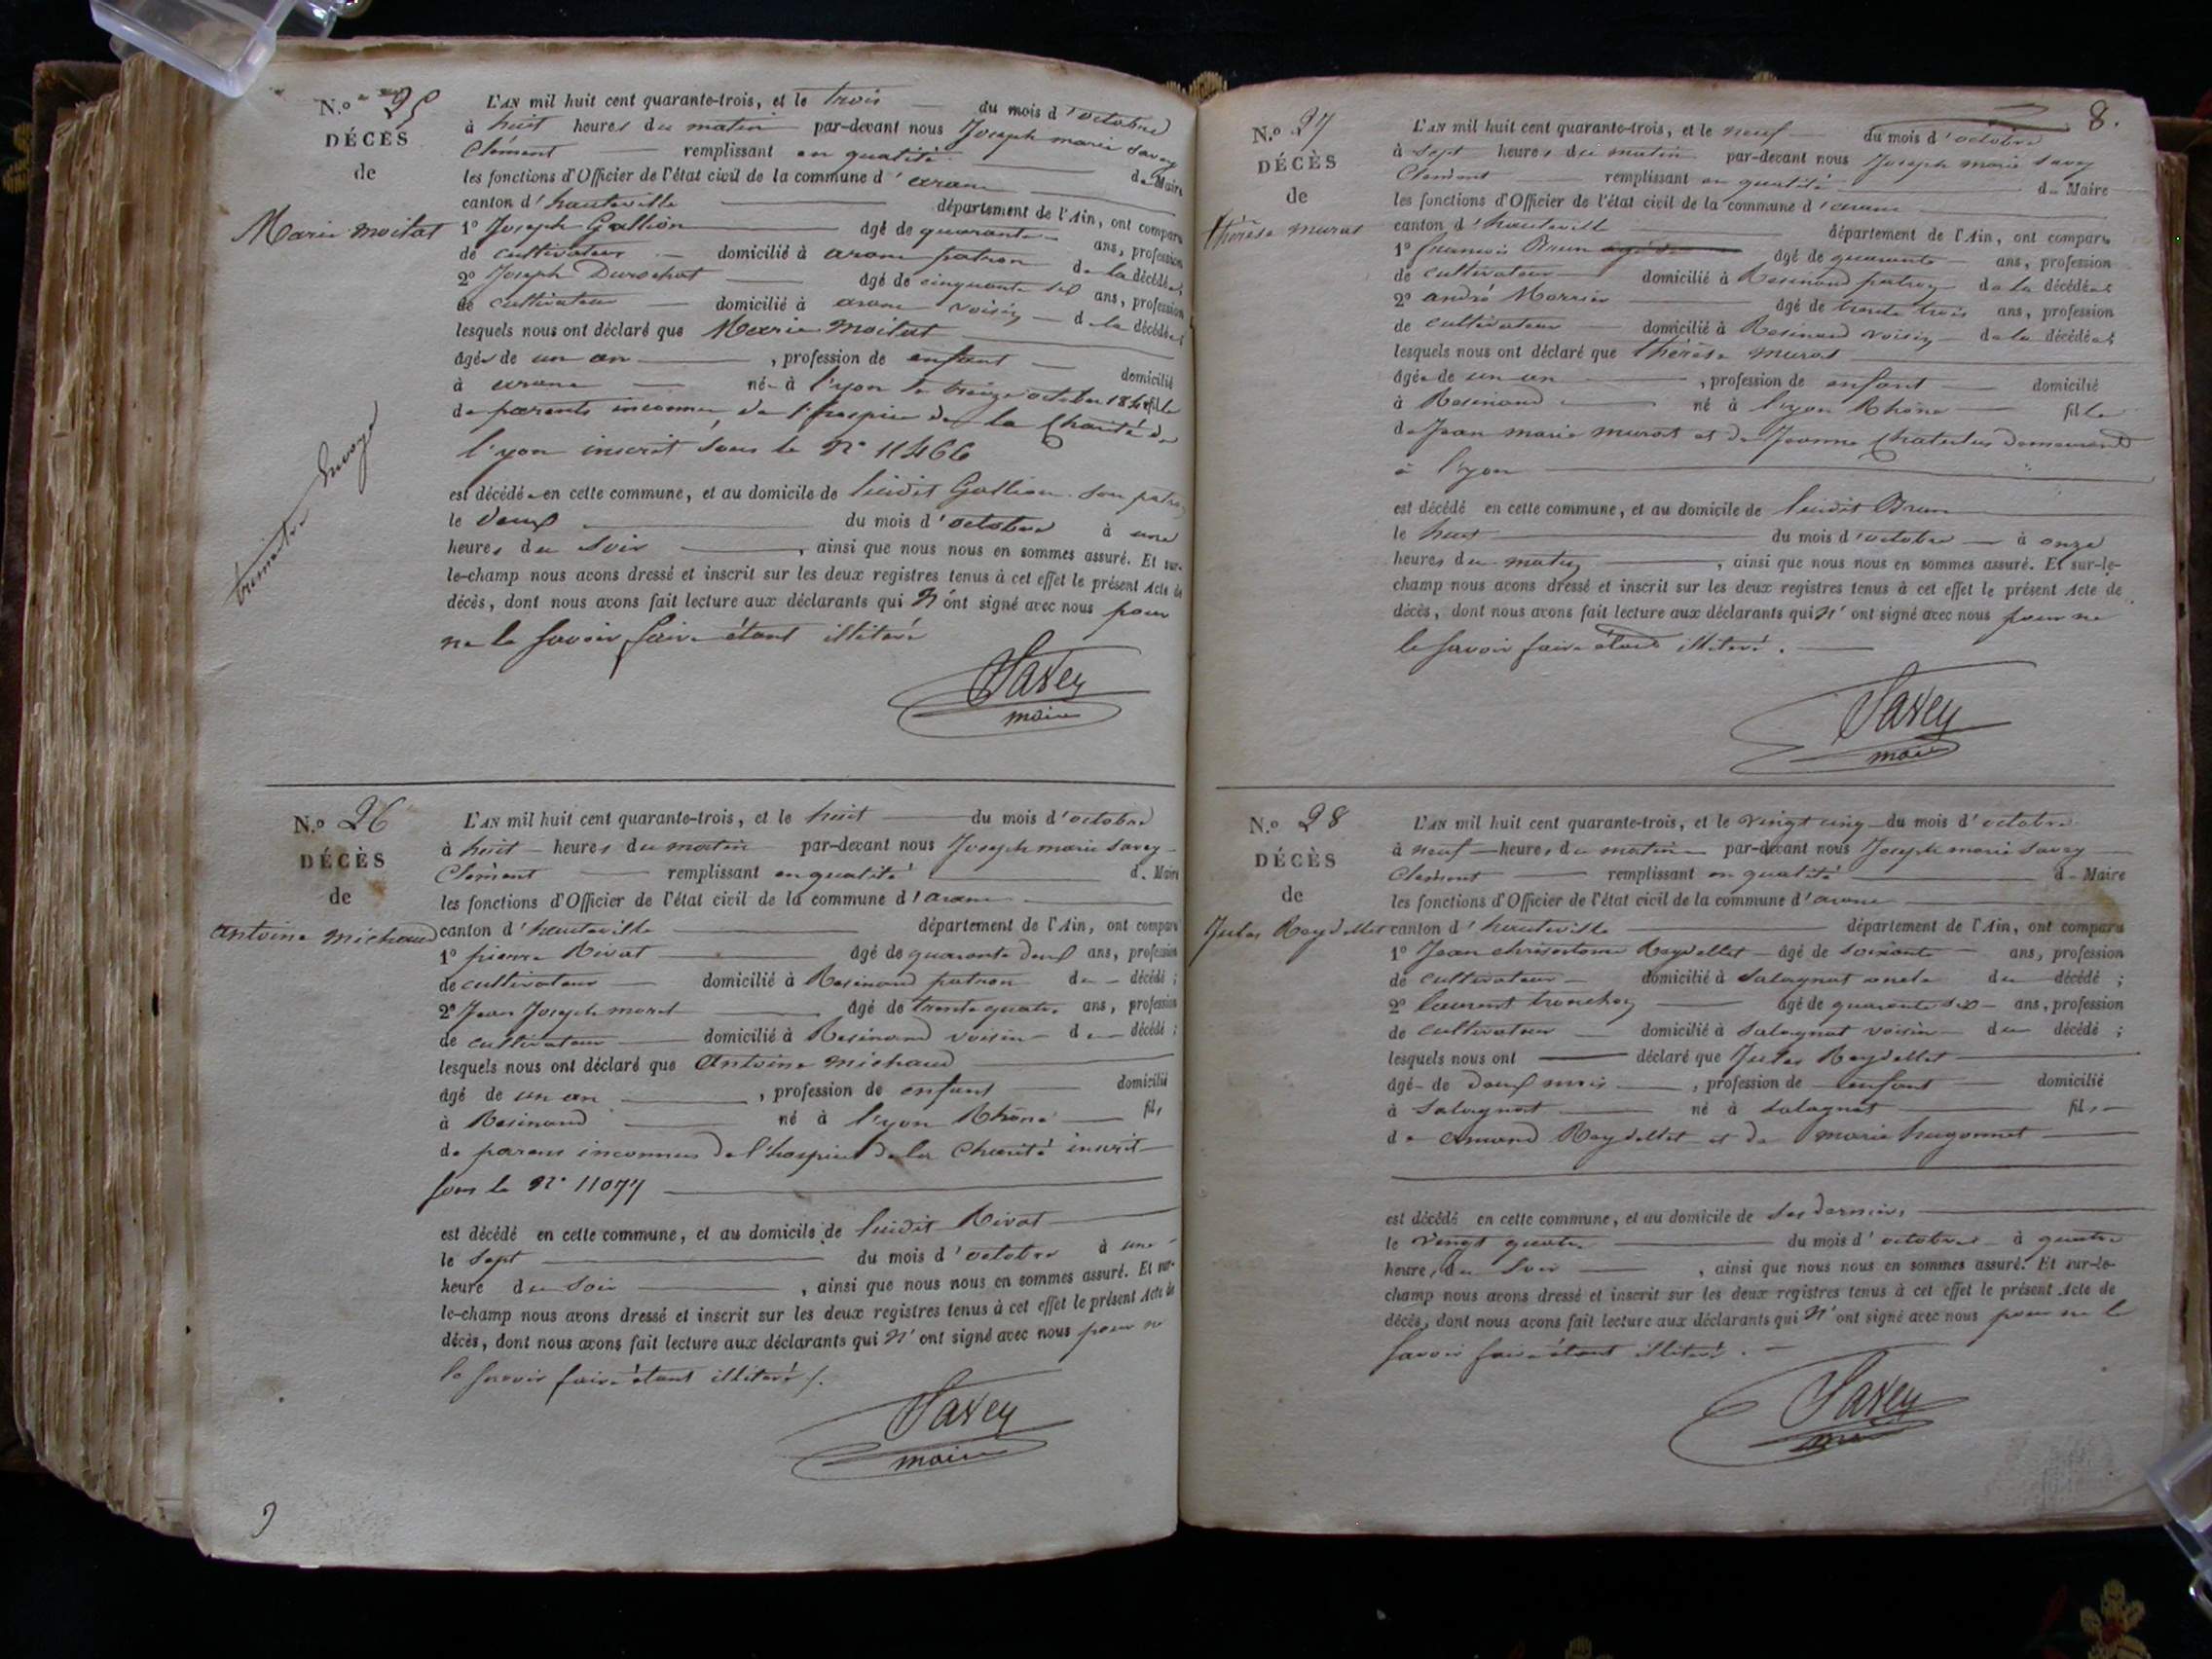 N.o 25
DÉCÈS
de
Marie Moitat
extrait Envoyé
L'AN mil huit cent quarante-trois, et le trois du mois d'octobre
à huit heures du matin par-devant nous Joseph marie Savey
Clément remplissant en qualité de Maire
les fonctions d'Officier de l'état civil de la commune d'arane
canton d'hauteville département de l'Ain, ont comparu
1º Joseph Gallion âgé de quarante ans, profession
de cultivateur domicilié à arane patron de la décédée;
2º Joseph Durochat âgé de cinquante six ans, profession
de cultivateur domicilié à arane voisin de la décédée;
lesquels nous ont déclaré que Marie Moitat
âgée de un an, profession de enfant domicilié
à arane née à l'yon le treize octobre fille
de parents inconnu, de l'hospice de la Charité de
l'yon inscrit sous le Nº 11466
est décédée en cette commune, et au domicile de luidit Gallion son patron
le deux du mois d'octobre à une
heures du soir, ainsi que nous nous en sommes assuré. Et sur-
le-champ nous avons dressé et inscrit sur les deux registres tenus à cet effet le présent Acte de
décès, dont nous avons fait lecture aux déclarants qui N'ont signé avec nous pour
ne le savoir faire étant illitéré
Savey
maire
N.o 26
DÉCÈS
de
Antoine Michaud
L'AN mil huit cent quarante-trois, et le huit du mois d'octobre
à huit heures du matin par-devant nous Joseph marie Savey
Clément remplissant en qualité de Maire
les fonctions d'Officier de l'état civil de la commune d'arane
canton d'hauteville département de l'Ain, ont comparu
1º pierre Rivat âgé de quarante deux ans, profession
de cultivateur domicilié à Resinand patron du décédé;
2º Jean Joseph morel âgé de trente quatre ans, profession
de cultivateur domicilié à Resinand voisin du décédé;
lesquels nous ont déclaré que Antoine Michaud
âgé de un an, profession de enfant domicilié
à Resinand né à l'yon Rhône fils
de parens inconnus de l'hospice de la Charité inscrit
sous le Nº 11077
est décédé en cette commune, et au domicile de luidit Rivat
le sept du mois d'octobre à une
heure du soir, ainsi que nous nous en sommes assuré. Et sur-
le-champ nous avons dressé et inscrit sur les deux registres tenus à cet effet le présent Acte de
décès, dont nous avons fait lecture aux déclarants qui N'ont signé avec nous pour ne
le savoir faire étant illitéré /.
Savey
maire
8.
N.o 27
DÉCÈS
de
thérèse murat
L'AN mil huit cent quarante-trois, et le neuf du mois d'octobre
à sept heures du matin par-devant nous Joseph marie Savey
Clément remplissant en qualité de Maire
les fonctions d'Officier de l'état civil de la commune d'arane
canton d'hauteville département de l'Ain, ont comparu
1º françois Brun âgé de quarante ans, profession
de cultivateur domicilié à Resinand patron de la décédée;
2º andré Morrier âgé de trente trois ans, profession
de cultivateur domicilié à Resinand voisin de la décédée;
lesquels nous ont déclaré que thérèse murat
âgée de un an, profession de enfant domicilié
à Resinand né à l'yon Rhône fille
de Jean marie murat et de Jeanne demeurant
à l'yon
est décédé en cette commune, et au domicile de luidit Brun
le huit du mois d'octobre à onze
heures du matin, ainsi que nous nous en sommes assuré. Et sur-le-
champ nous avons dressé et inscrit sur les deux registres tenus à cet effet le présent Acte de
décès, dont nous avons fait lecture aux déclarants qui N'ont signé avec nous pour ne
le savoir faire étant illitéré.
Savey
maire
N.o 28
DÉCÈS
de
Jules Reydellet
L'AN mil huit cent quarante-trois, et le vingt cinq du mois d'octobre
à neuf heures du matin par-devant nous Joseph marie Savey
Clément remplissant en qualité de Maire
les fonctions d'Officier de l'état civil de la commune d'arane
canton d'hauteville département de l'Ain, ont comparu
1º Jean chrisostome Reydellet âgé de soixante ans, profession
de cultivateur domicilié à salagnat oncle du décédé;
2º laurent tronchon âgé de quarante six ans, profession
de cultivateur domicilié à salagnat voisin du décédé;
lesquels nous ont déclaré que Jules Reydellet
âgé de deux mois, profession de enfant domicilié
à Salagnat né à salagnat fils
de Amand Reydellet et de marie hugonnet
est décédé en cette commune, et au domicile de ses derniers
le vingt quatre du mois d'octobre à quatre
heures du soir, ainsi que nous nous en sommes assuré. Et sur-le-
champ nous avons dressé et inscrit sur les deux registres tenus à cet effet le présent Acte de
décès, dont nous avons fait lecture aux déclarants qui N'ont signé avec nous pour ne le
savoir faire étant illitéré.
Savey